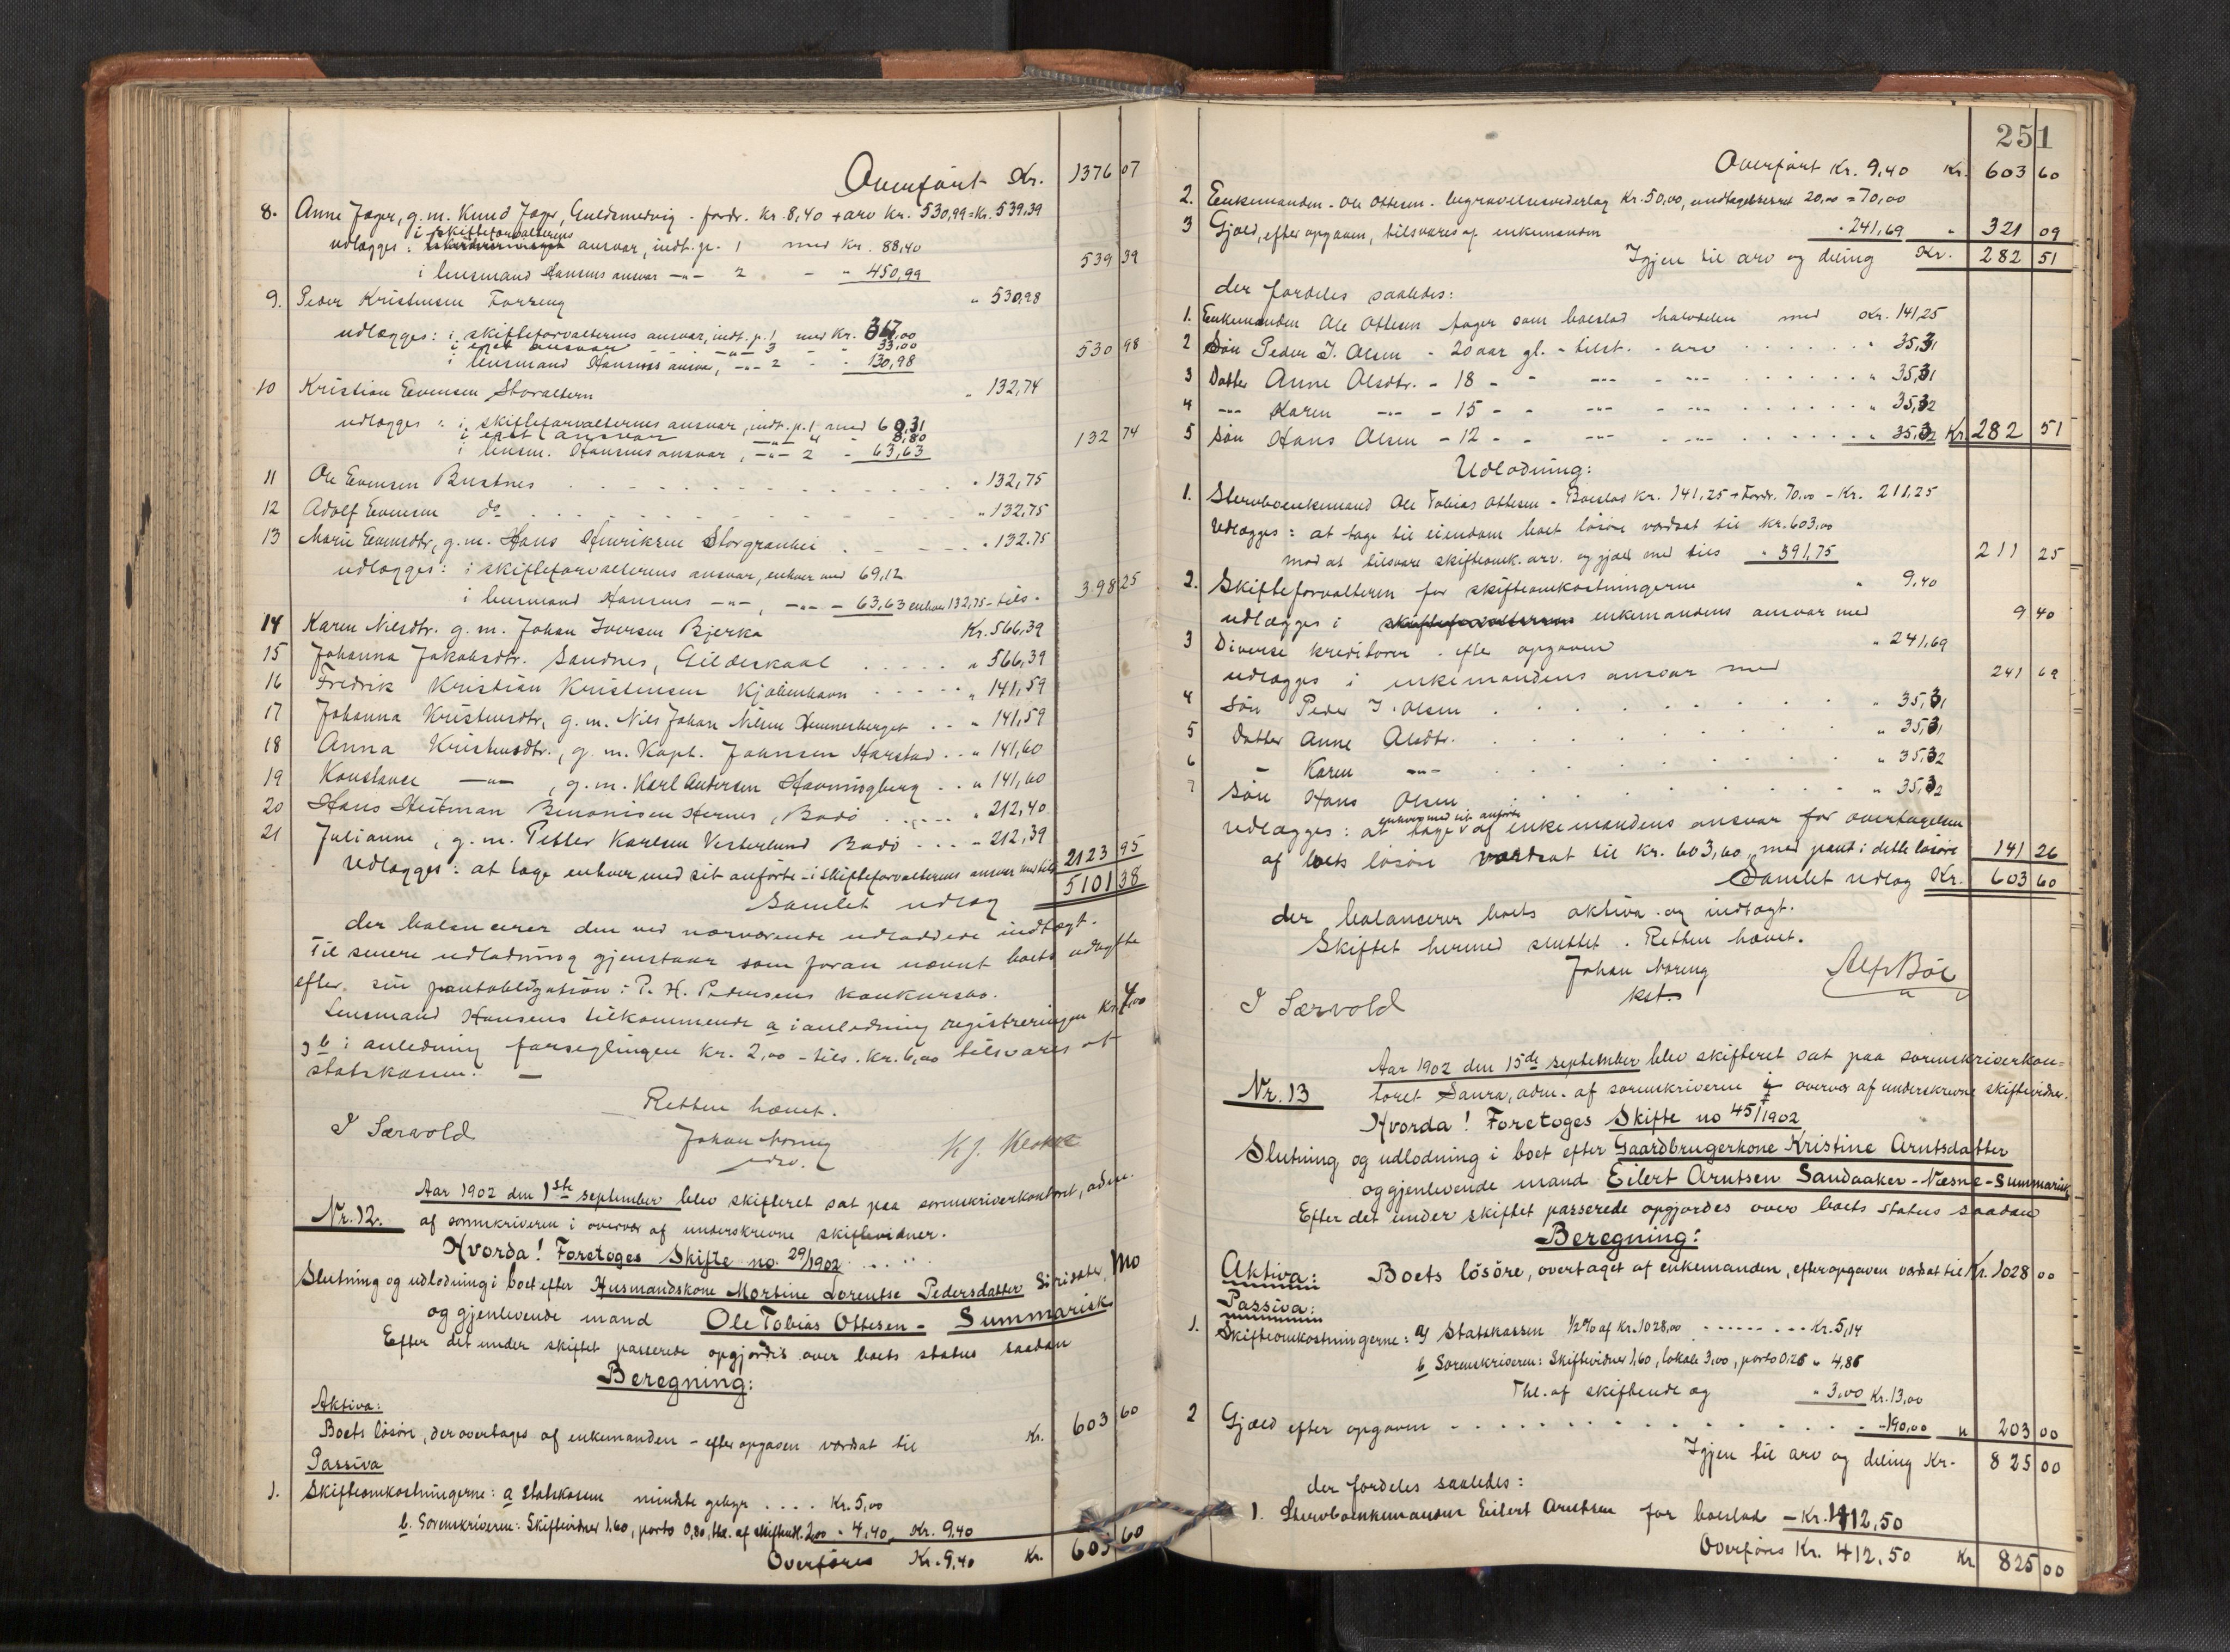 Overført Kr. 1376 07
8. Anne Jager, g.m. Knud Jager, Guldsmedvig - fordr. kr. 8,40 + arv kr. 530,99 = Kr. 539,39
i skifteforvalterens
udlægges: ansvar, indt. p. 1 med kr. 88,40
i lensmand Hansens ansvar -"- 2 - " 450,99 539 39
9. Peder Kristensen Forreng " 530,98
udlægges: i skifteforvalterens ansvar, indt. p. 1 med Kr. 367,00
i eget ansvar -"- 3 - - 33,00
i lensmand Hansens ansvar, -"- 2 - - 130,98 530 98
10 Kristian Evensen Storaltern " 132,74
udlægges: i skifteforvalterens ansvar, indt. p. 1 med 60,31
i eget ansvar -"- 4 - 8,80
i lensm. Hansens ansvar, -"- 2 - 63,63 132 74
11 Ole Evensen Bustnes " 132,75
12 Adolf Evensen do " 132,75
13 Marie Evensdtr, g.m. Hans Henriksen Storgranhei " 132.75
udlægges: i skifteforvalterens ansvar, enhver med 69,12
i lensmand Hansens -"-, -"- - 63,63 enhver 132,75 - tils. 398 25
14 Karen Nilsdtr. g.m. Johan Iversen Bjerka Kr. 566,39
15 Johanna Jakobsdtr. Sandnes, Gildeskaal " 566,39
16 Fredrik Kristian Kristensen Kjøbenhavn " 141,59
17 Johanna Kristensdtr, g.m. Nils Johan Nilsen Hemnesberget " 141,59
18 Anna Kristensdtr., g.m. Kapt. Johnsen Harstad " 141,60
19 Konstance -"-, g.m. Karl Antersen Havningberg " 141,60
20 Hans Heitman Benonisen Hernes, Bodø " 212,40
21 Julianne, g.m. Petter Karlsen Vesterlund Bodø - 212,39
Udlægges: at tage enhver med sit anførte - i skifteforvalterens ansvar med tils 2123 95
Samlet udlæg 5101 38
der balancerer den ved nærværende udloddede indtægt.
Til senere udlodning gjenstaar som foran nævnt boets udbytte
efter sin pantobligation i P. H. Pedersens konkursbo.
Lensmand Hansens tilkommende a i anledning registreringen Kr. 4,00
og b i anledning forseglingen kr. 2,00 - tils. kr. 6,00 tilsvares af
statskassen. —
Retten hævet.
I Særvold Johan Noreng K J. Klokke
Aar 1902 den 1ste september blev skifteret sat paa sorenskriverkontoret, adm.
Nr. 12. af sorenskriveren i overvær af underskrevne skiftevidner.
Hvorda! Foretoges Skifte no. 29/1902
Slutning og udlodning i boet efter Husmandskone Mortine Lorentse Pedersdatter Mo
og gjenlevende mand Ole Tobias Ottesen - Summarisk
Efter det under skiftet passerede opgjordes over boets status saadan
Beregning:
Aktiva:
Boets løsøre, der overtages af enkemanden - efter opgaven værdsat til Kr. 603 60
Passiva
1. Skifteomkostningerne: a Statskassen mindste gebyr Kr. 5,00
b. Sorenskriveren: Skiftevidner 1,60, porto 0,80, thl. af skiftendt. 2,00 - 4,40 Kr. 9,40
Overføres Kr. 9,40 Kr. 603 60
251
Overført Kr. 9,40 Kr. 603 60
2. Enkemanden - Ole Ottesen - begravelsesvederlag Kr. 50,00, undtagelsesret 20,00 = 70,00
3 Gjæld, efter opgaven, tilsvares af enkemanden " 241,69 " 321 09
Igjen til arv og deling Kr. 282 51
der fordeles saaledes:
1. Enkemanden Ole Ottesen tager som boeslod halvdelen med Kr. 141,25
2 Søn Peder J. Olsen - 20 aar gl. - tilst. - arv " 35,31
3 Datter Anne Olsdtr. - 18 - - -"- - -"- " 35,31
4 -"- Karen -"- - 15 - - -"- - -"- " 35,32
5 Søn Hans Olsen - 12 - - -"- - -"- " 35,32 Kr. 282 51
Udlodning:
1. Stervboenkemand Ole Tobias Ottesen - Boeslod kr. 141,25 + Fordr. 70,00 - Kr. 211,25
Udlægges: at tage til eiendom boets løsøre værdsat til kr. 603,00
mod at tilsvare skifteomk. arv og gjæld med tils " 391,75 211 25
2. Skifteforvalteren for skifteomkostningerne " 9,40
udlægges i skifteforvalterens enkemandens ansvar med 9 40
3 Diverse kreditorer - efter opgaven " 241,69
udlægges i enkemandens ansvar med 241 69
4 Søn Peder J. Olsen " 35,31
5 Datter Anne Olsdtr. " 35,31
6 - Karen -"- " 35,32
7 Søn Hans Olsen " 35,32
enhver med sit anførte
Udlægges: at tage af enkemandens ansvar for overtagelsen
af boets løsøre værdsat til kr. 603,60, med pant i dette løsøre 141 26
Samlet udlæg Kr. 603 60
der balancerer boets aktiva og indtægt.
Skiftet hermed sluttet. Retten hævet.
Johan Noreng Alf Böe
kst.
I Særvold
Aar 1902 den 15de september blev skifteret sat paa sorenskriverkon-
Nr. 13 toret Saura, adm. af sorenskriveren i overvær af underskrevne skiftevidner.
Hvorda! Foretoges Skifte no 45/1902
Slutning og udlodning i boet efter Gaardbrugerkone Kristine Arntsdatter
og gjenlevende mand Eilert Arntsen Sandaaker - Næsne - Summarisk
Efter det under skiftet passerede opgjordes over boets status saadan
Beregning:
Aktiva: Boets løsøre, overtaget af enkemanden, efter opgaven værdsat til Kr. 1028 00
Passiva:
1. Skifteomkostningerne: a) Statskassen 1/2 % af Kr. 1028,00 Kr. 5,14
b Sorenskriveren: Skiftevidner 1,60, lokale 3,00, porto 0,26 " 4,86
Thl. af skiftende og " 3,00 Kr. 13,00
2 Gjæld efter opgaven - 190,00 " 203 00
Igjen til arv og deling Kr. 825 00
der fordeles saaledes:
1. Stervboenkemanden Eilert Arntsen for boeslod - Kr. 412,50
Overføres Kr. 412,50 Kr 825 00